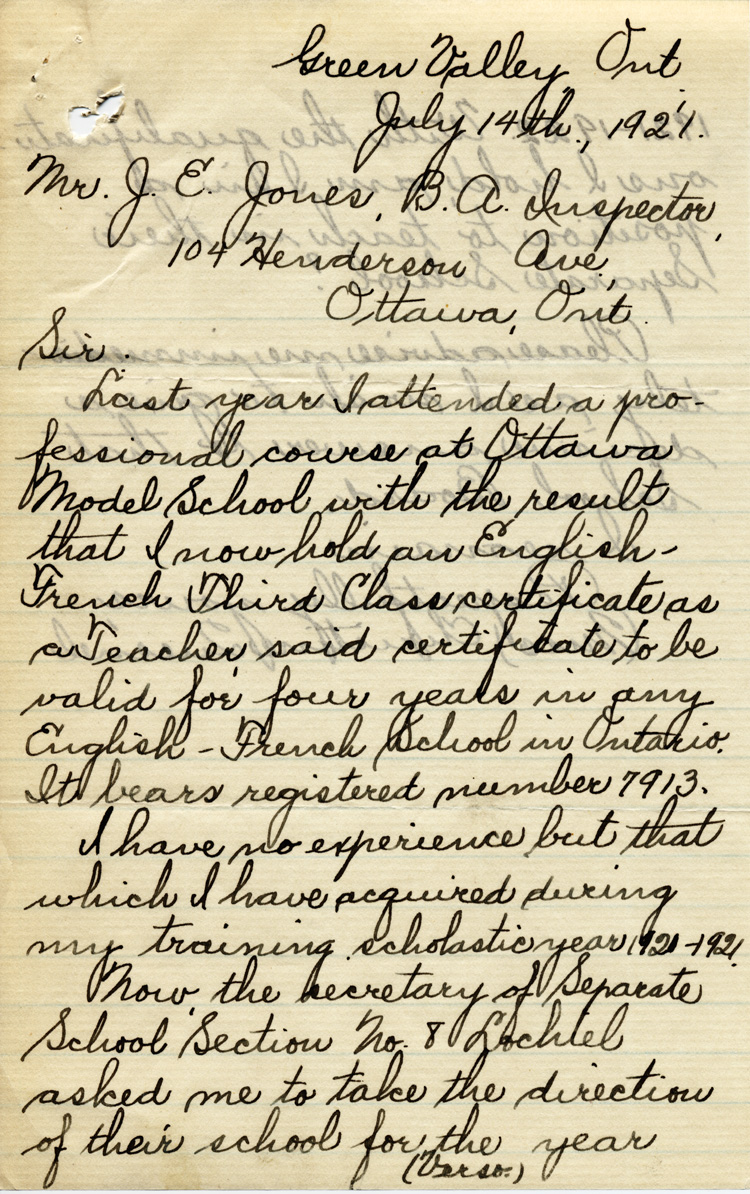 Green Valley, Ont
July 14th., 1921.
Mr. J. E. Jones, B. A. Inspector,
104 Henderson Ave,
Ottawa, Ont.
Sir.
Last year I attended a pro-
fessional course at Ottawa
Model School with the result
that I now hold an English-
French Third Class certificate as
a Teacher, said certificate to be
valid for four years in any
English-French School in Ontario.
It bears registered number 7913.
I have no experience but that
which I have acquired during
my training scholastic year
Now, the secretary of Separate
School Section No. 8 Lochiel
asked me to take the direction
of their school for the year
(Verso.)